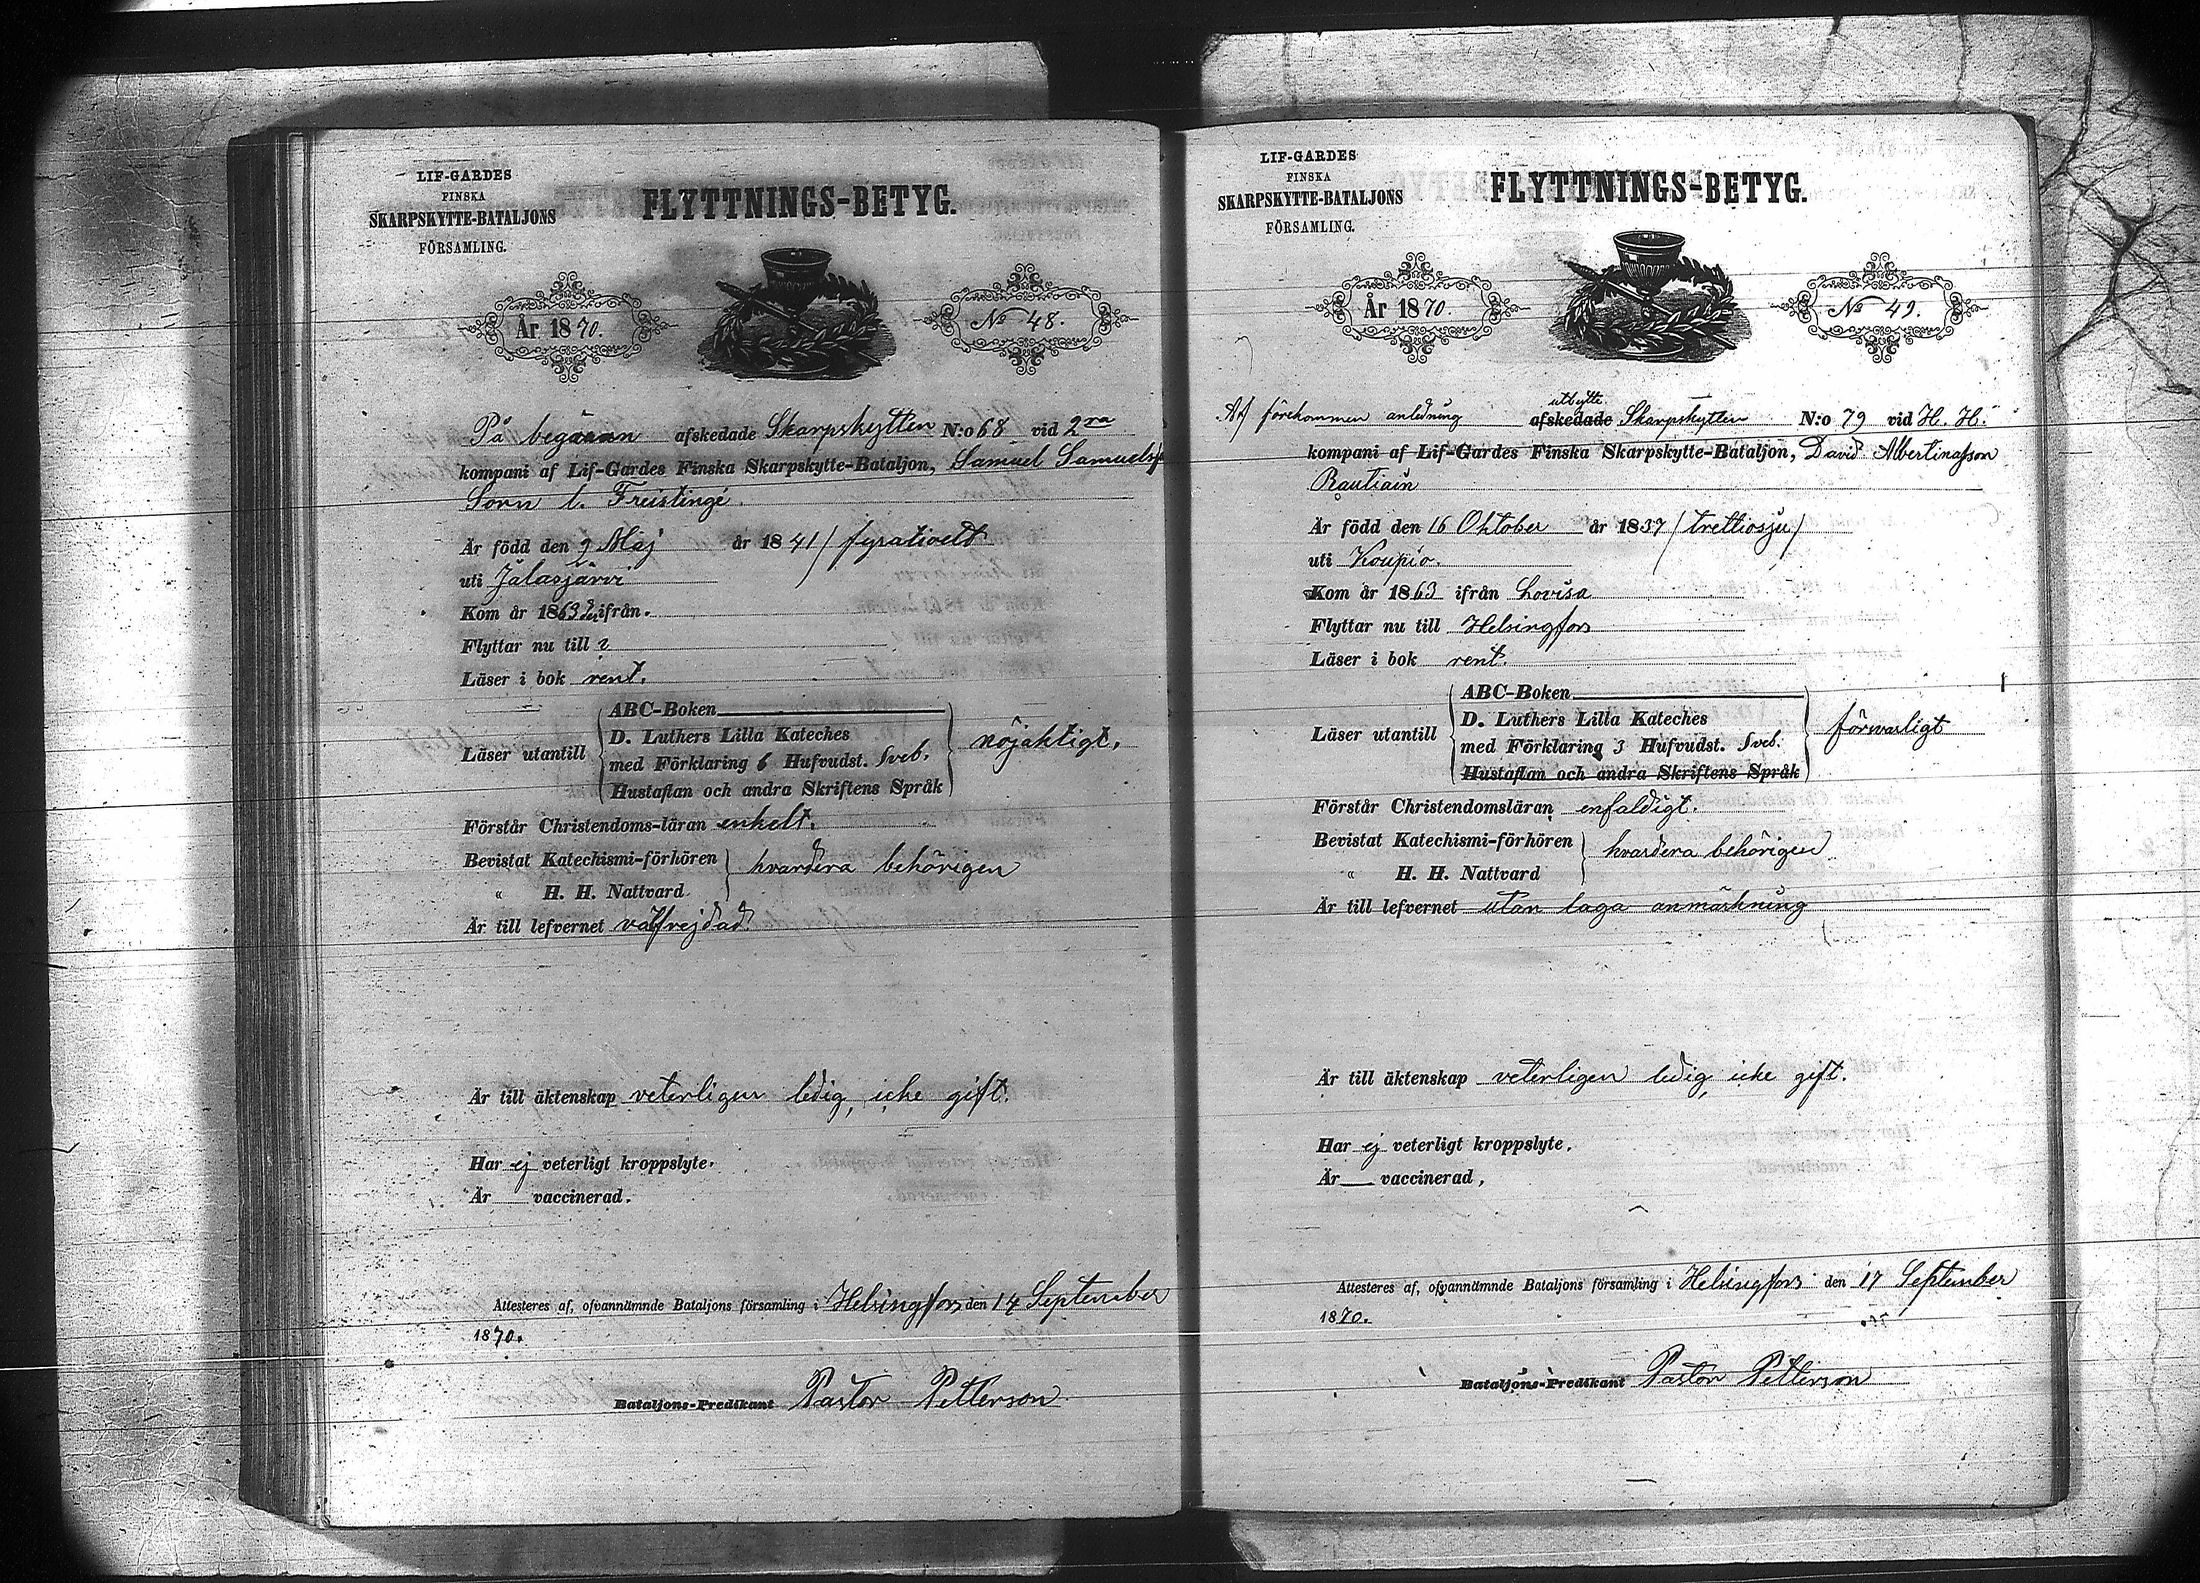 LIF-GARDES
FINSKA
SKARPSKYTTE-BATALJONS
FÖRSAMLING.
FLYTTNINGS-BETYG.
År 1870.
No 48.
På begäran afskedade Skarpskytten N:o 68 vid 2ra
kompani af Lif-Gardes Finska Skarpskytte-Bataljon, Samuel Samuels
Sorn l.
Är född den 9 Maj år 1841 / fyrationett
uti Jalasjärvi
Kom år 1863 ifrån.
Flyttar nu till
Läser i bok rent.
Läser utantill
ABC-Boken
D. Luthers Lilla Kateches
med Förklaring 6 Hufvudst. Sveb.
Hustaflan och andra Skriftens Språk
nöjaktigt.
Förstår Christendoms-läran enkelt.
Bevistat Katechismi-förhören
" H. H. Nattvard
hvardera behörigen
Är till lefvernet välfrejdad
Är till äktenskap veterligen ledig, icke gift.
Har ej veterligt kroppslyte.
Är — vaccinerad.
Attesteres af, ofvannämnde Bataljons församling i Helsingfors den 14 September
1870.
Bataljons-Predikant Pastor Petterson
LIF-GARDES
FINSKA
SKARPSKYTTE-BATALJONS
FÖRSAMLING.
FLYTTNINGS-BETYG.
År 1870.
No 49.
utbytte
Af förekommen anledning afskedade Skarpskytten N:o 79 vid H. H.
kompani af Lif-Gardes Finska Skarpskytte-Bataljon, David Albertinasson
Rautiain
Är född den 16 Oktober år 1837 / trettiosju /
uti Koupio.
Kom år 1863 ifrån Lovisa
Flyttar nu till Helsingfors
Läser i bok rent.
Läser utantill
ABC-Boken
D. Luthers Lilla Kateches
med Förklaring 3 Hufvudst. Sveb.
Hustaflan och andra Skriftens Språk
försvarligt
Förstår Christendomsläran enfaldigt.
Bevistat Katechismi-förhören
" H. H. Nattvard
hvardera behörigen
Är till lefvernet utan laga anmärkning
Är till äktenskap veterligen ledig, icke gift.
Har ej veterligt kroppslyte.
Är — vaccinerad,
Attesteres af, ofvannämnde Bataljons församling i Helsingfors den 17 September
1870.
Bataljons-Predikant Pastor Petterson